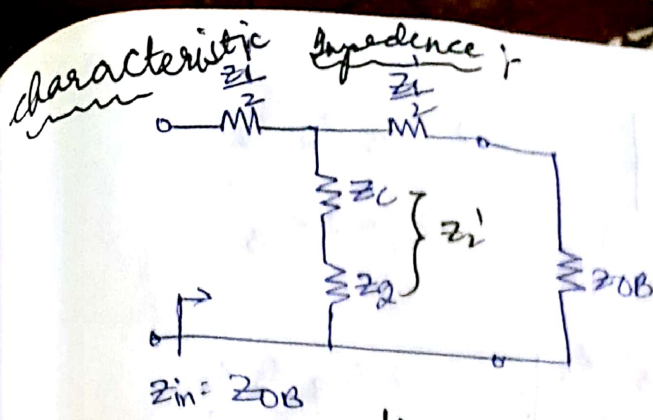 characteristic Impedence :-
Z1/2
Z1/2
Zc
Z2'
Z2
ZOB
Zin = ZOB